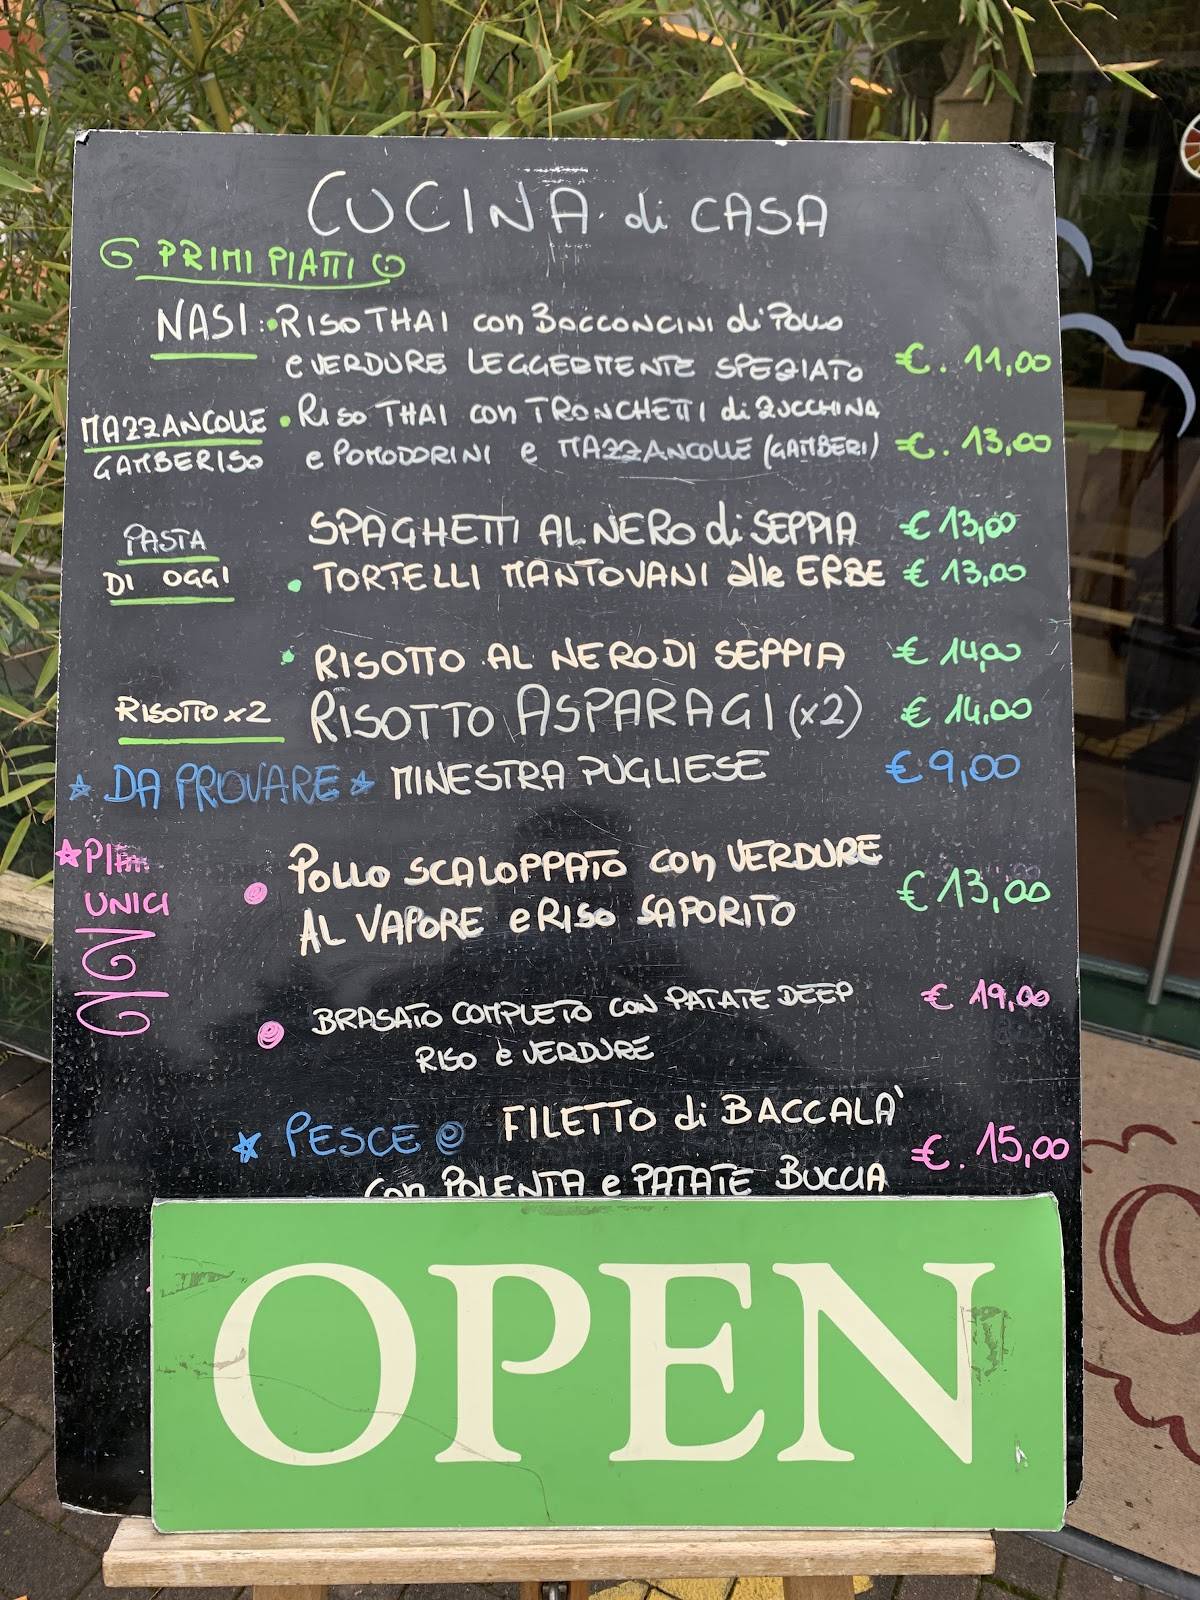 CUCINA di CASA
PRIMI PIATTI
NASI: • RISO THAI con BOCCONCINI di POLLO
e VERDURE LEGGERMENTE SPEZIATO €. 11,00
MAZZANCOLLE • RISO THAI con TRONCHETTI di ZUCCHINA
GAMBERISO e POMODORINI e MAZZANCOLLE (GAMBERI) €. 13,00
PASTA SPAGHETTI AL NERO di SEPPIA € 13,00
DI OGGI • TORTELLI MANTOVANI alle ERBE € 13,00
• RISOTTO AL NERO DI SEPPIA € 14,00
RISOTTO x2 RISOTTO ASPARAGI (x2) € 14,00
DA PROVARE MINESTRA PUGLIESE € 9,00
PIATTI
UNICI
POLLO SCALOPPATO con VERDURE
AL VAPORE e RISO SAPORITO € 13,00
BRASATO COMPLETO con PATATE DEEP € 19,00
RISO e VERDURE
PESCE FILETTO di BACCALA'
con POLENTA e PATATE BUCCIA €. 15,00
OPEN